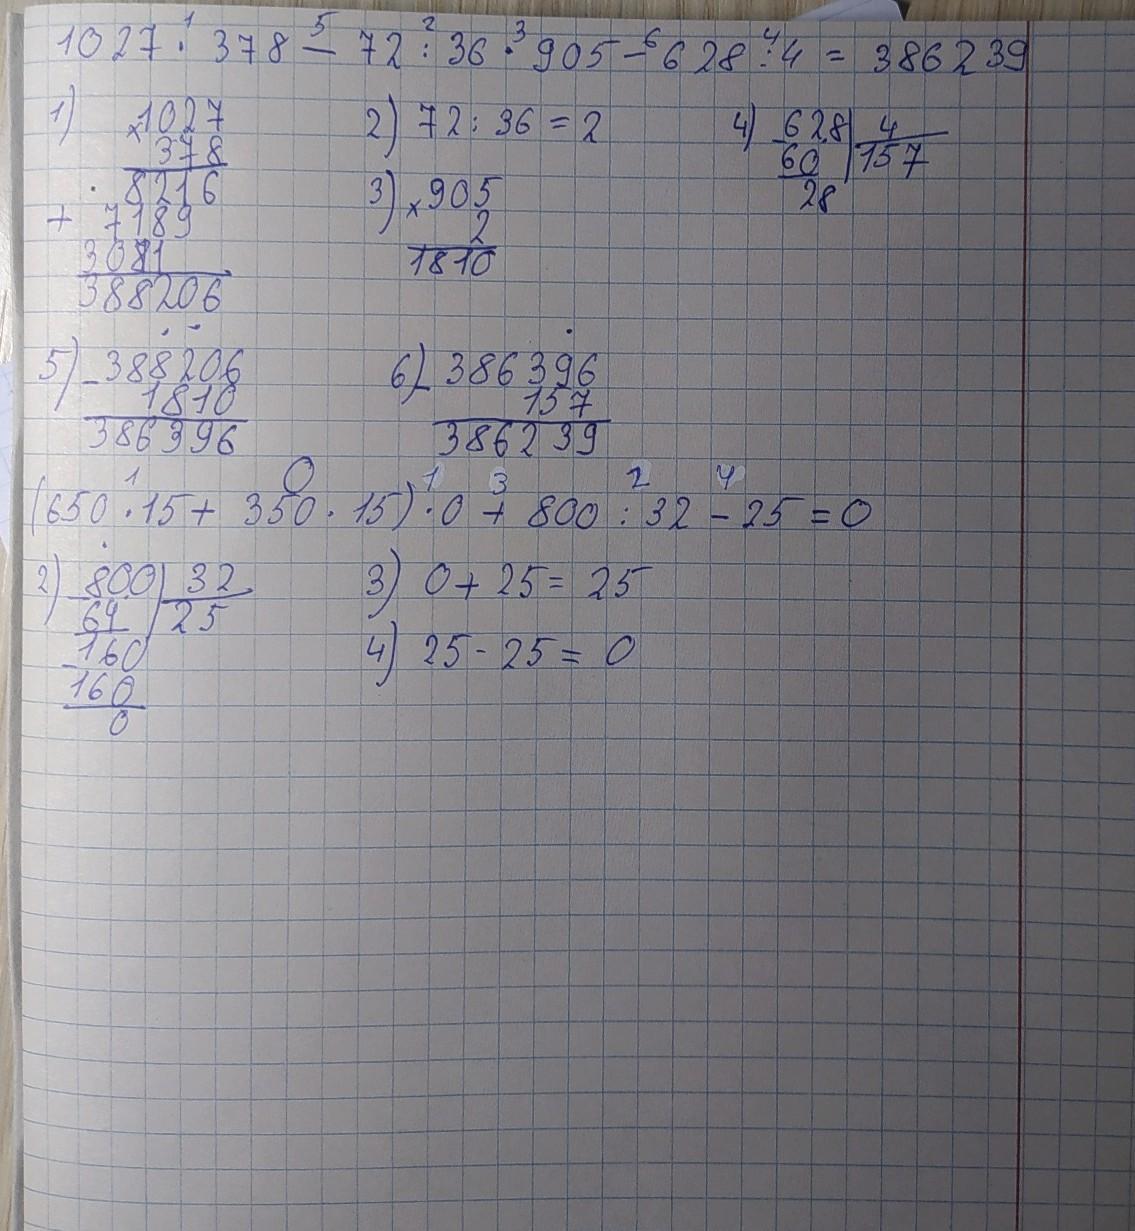 1027 · 378 − 72 : 36 · 905 − 628 : 4 = 386239
1 5 2 3 6 4
1) × 1027
378
8216
+ 7189
3081
388206
2) 72 : 36 = 2
3) × 905
2
1810
4) − 628 | 4
60 | 157
28
5) − 388206
1810
386396
6) − 386396
157
386239
1 0 1 3 2 4
(650 · 15 + 350 · 15) · 0 + 800 : 32 − 25 = 0
2) − 800 | 32
64 | 25
− 160
160
0
3) 0 + 25 = 25
4) 25 - 25 = 0